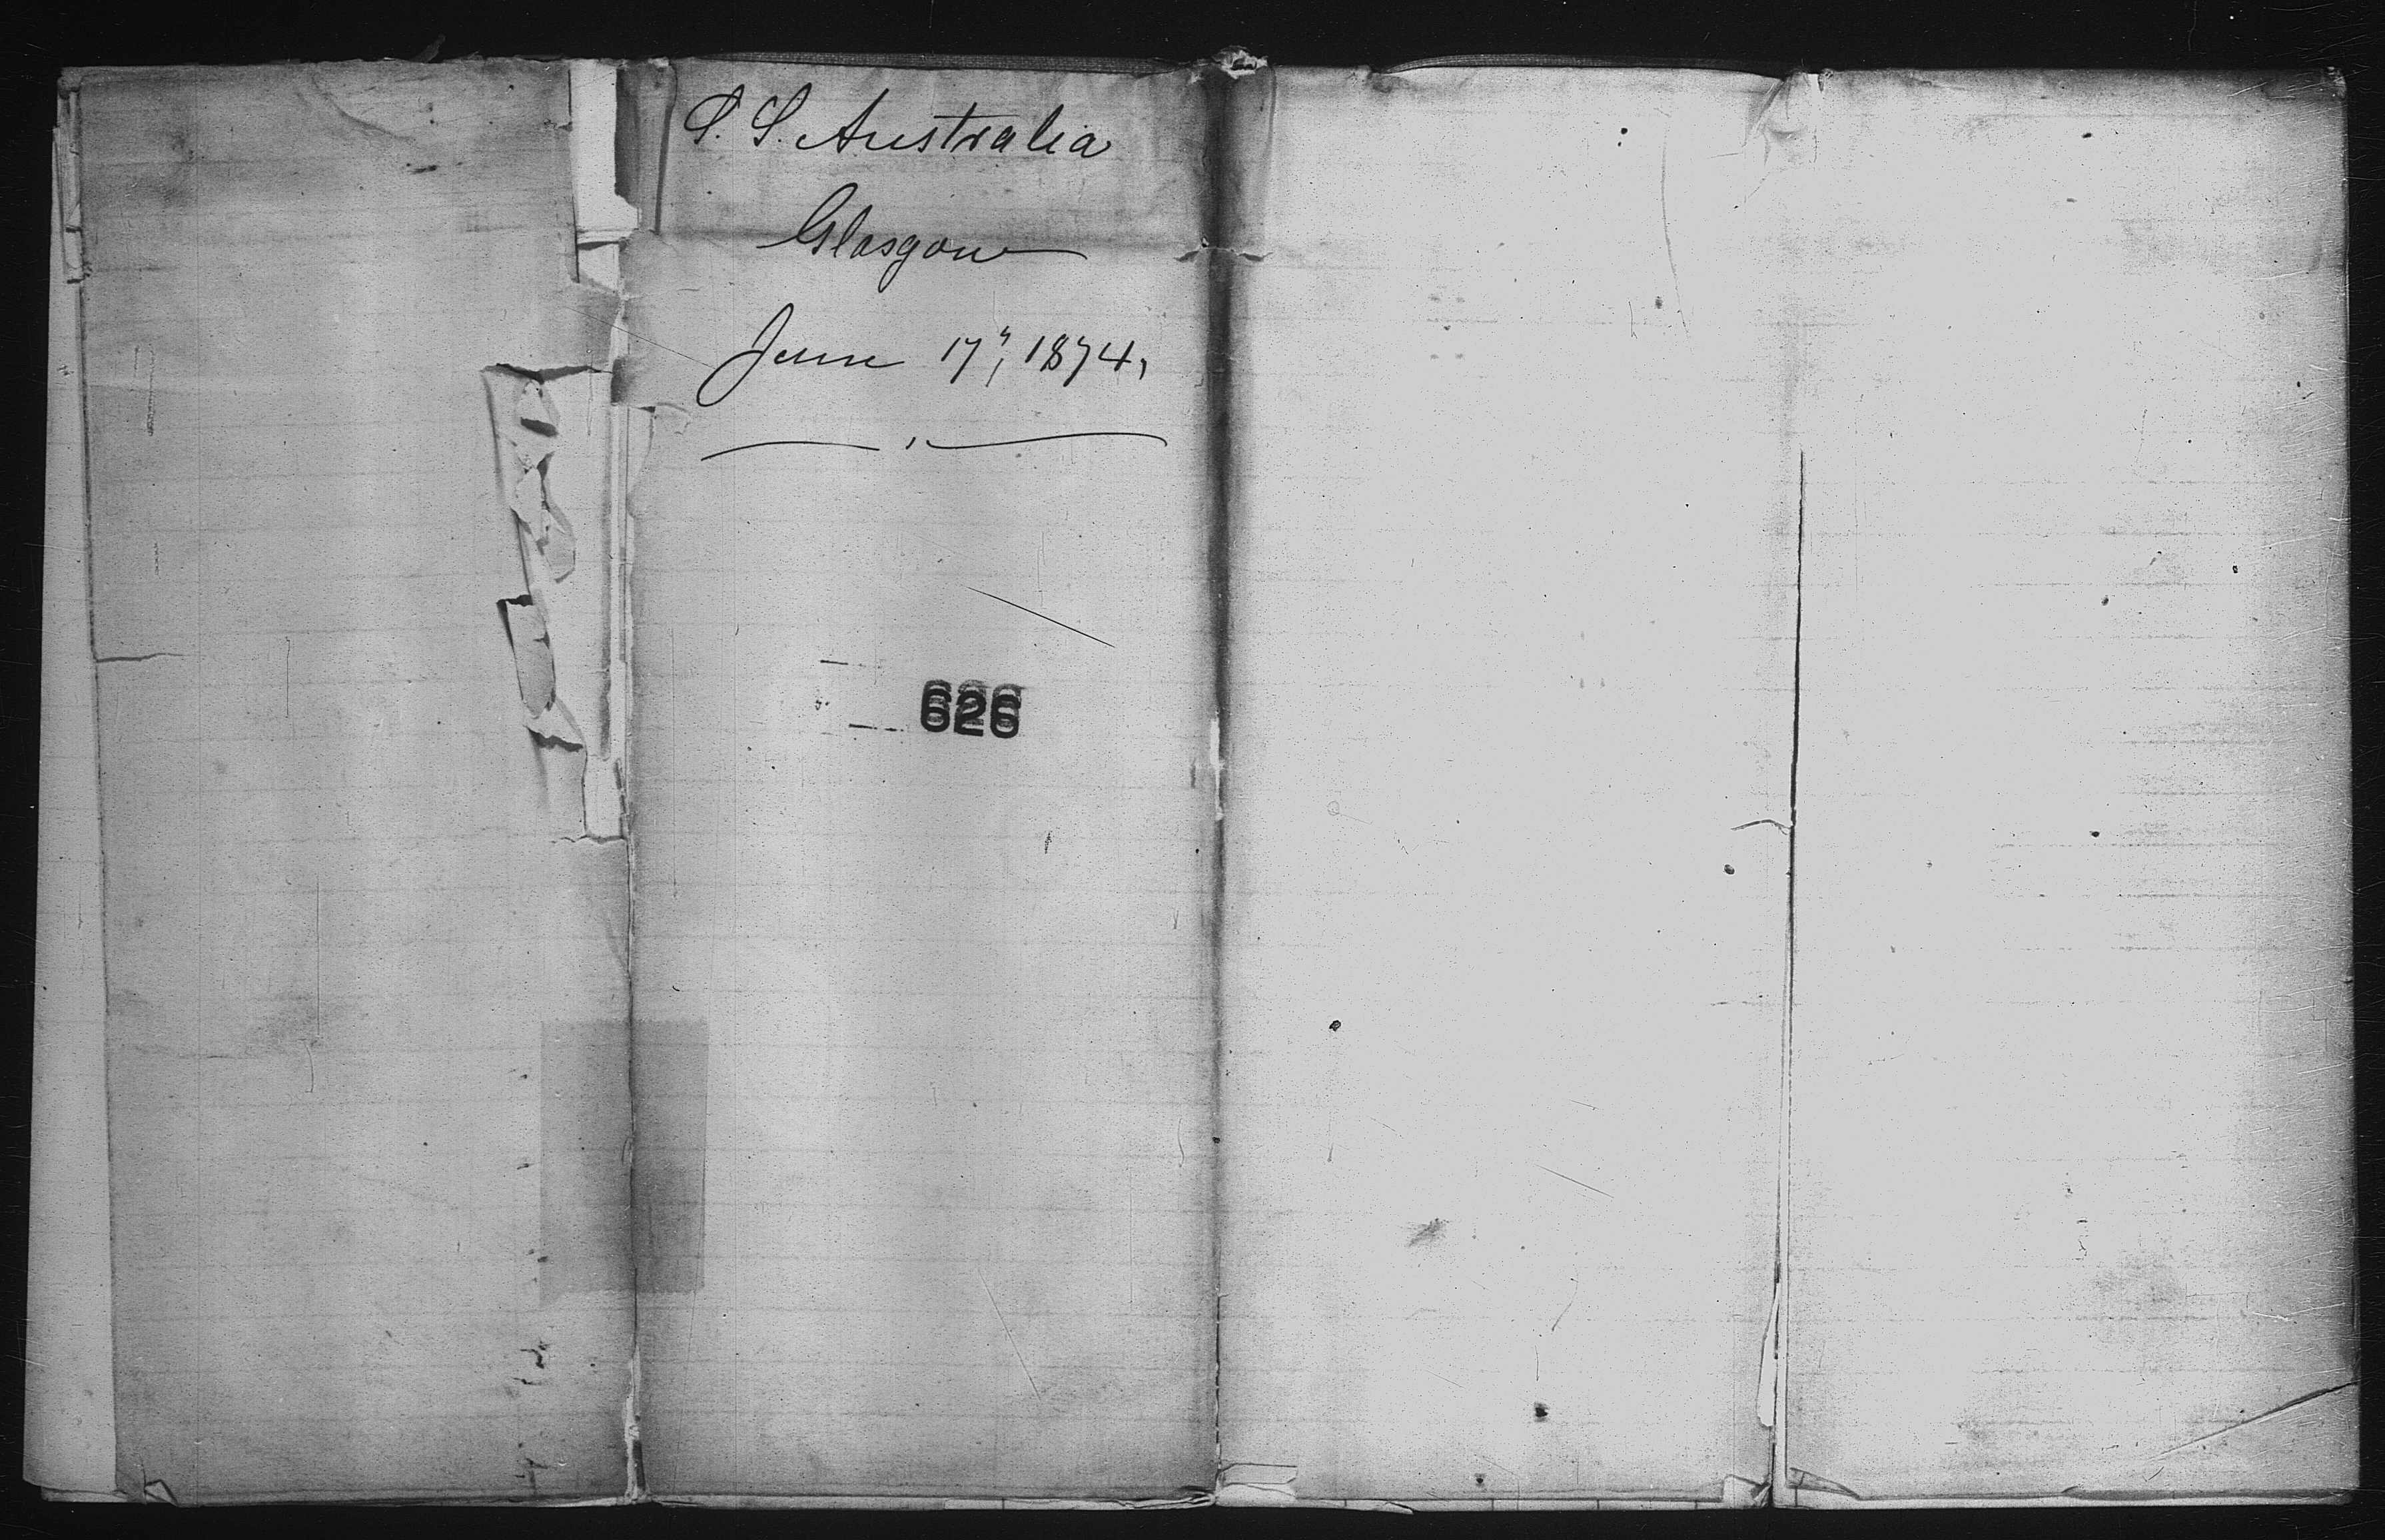 S. S. Australia
Glasgow
June 17", 1874,
626